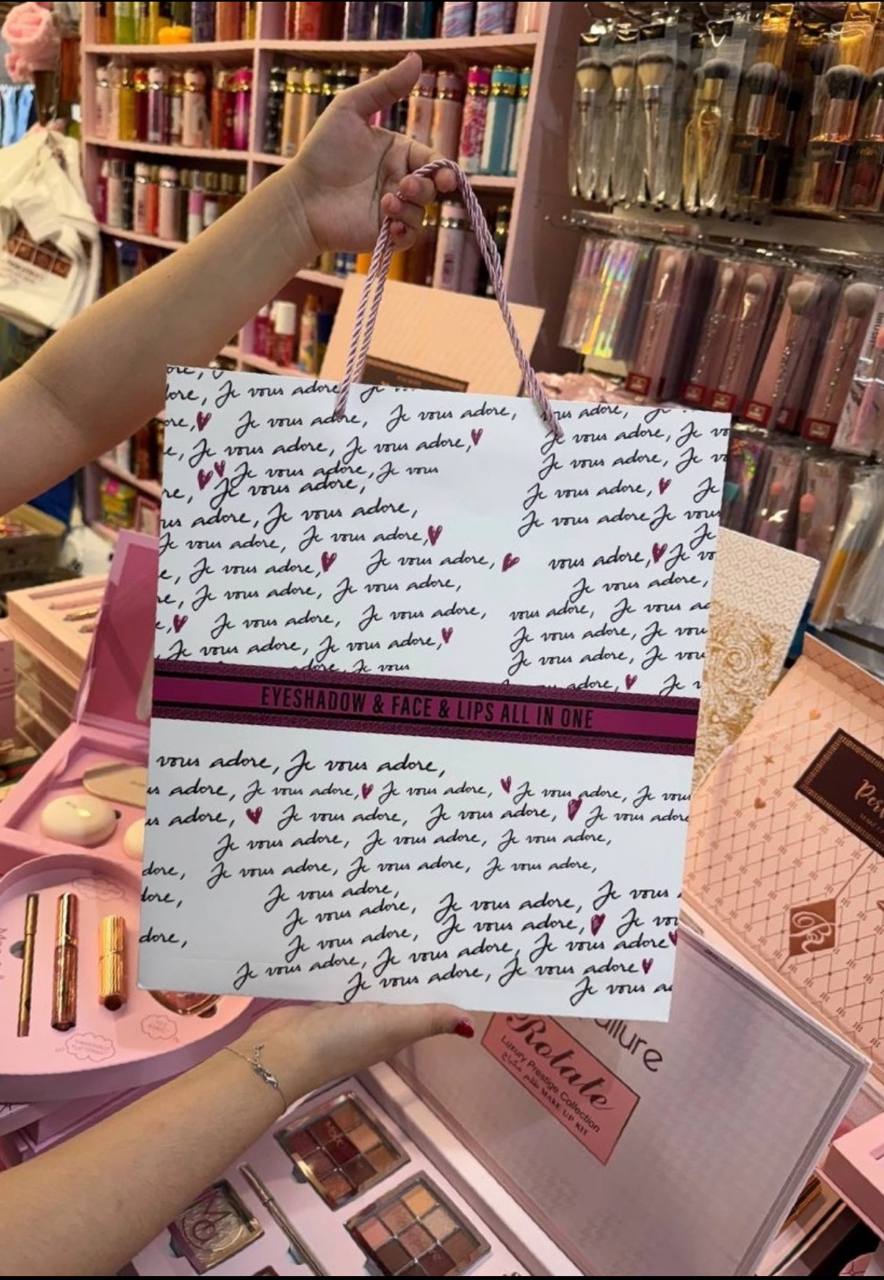 Je vous adore, Je
ore, Je vous adore, Je vous adore,
Je vous adore, Je vous adore,
Je vous adore, Je vous
Je vous adore,
us adore, Je vous adore,
Je vous adore, Je vous adore,
Je vous adore, Je vous adore, vous adore, Je vo
Je vous adore, Je vous adore, Je vous adore,
Je vous adore, Je vous adore, vous adore, Je vous a
Je vous adore, Je vous adore, Je vous adore, Je vou
adore, Je vous Je vous adore, Je vou
adore, Je v
EYESHADOW & FACE & LIPS ALL IN ONE
vous adore, Je vous adore,
us adore, Je vous adore, Je vous adore, Je vous adore, Je vous
us adore, Je vous adore, Je vous adore, Je vous adore,
Je vous adore, Je vous adore, Je vous adore,
dore, Je vous adore, Je vous adore, Je vous adore,
dore, Je vous adore, Je vous adore, Je vous
Je vous adore, Je vous adore, Je vou
dore, Je vous adore, Je vous adore,
Je vous adore, Je vous adore, Je vous adore
Je vous adore, Je vous adore
Je vous adore, Je vous a
allure
Rotate
Luxury Prestige Collection
MAKE UP KIT